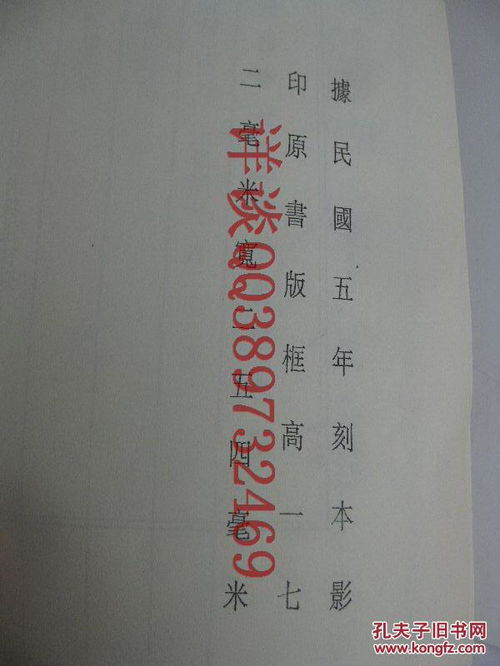 據民國五年刻本影
印原書版框高一七
二毫米寬二五四毫米
详谈QQ389732469
孔夫子旧书网
www.kongfz.com